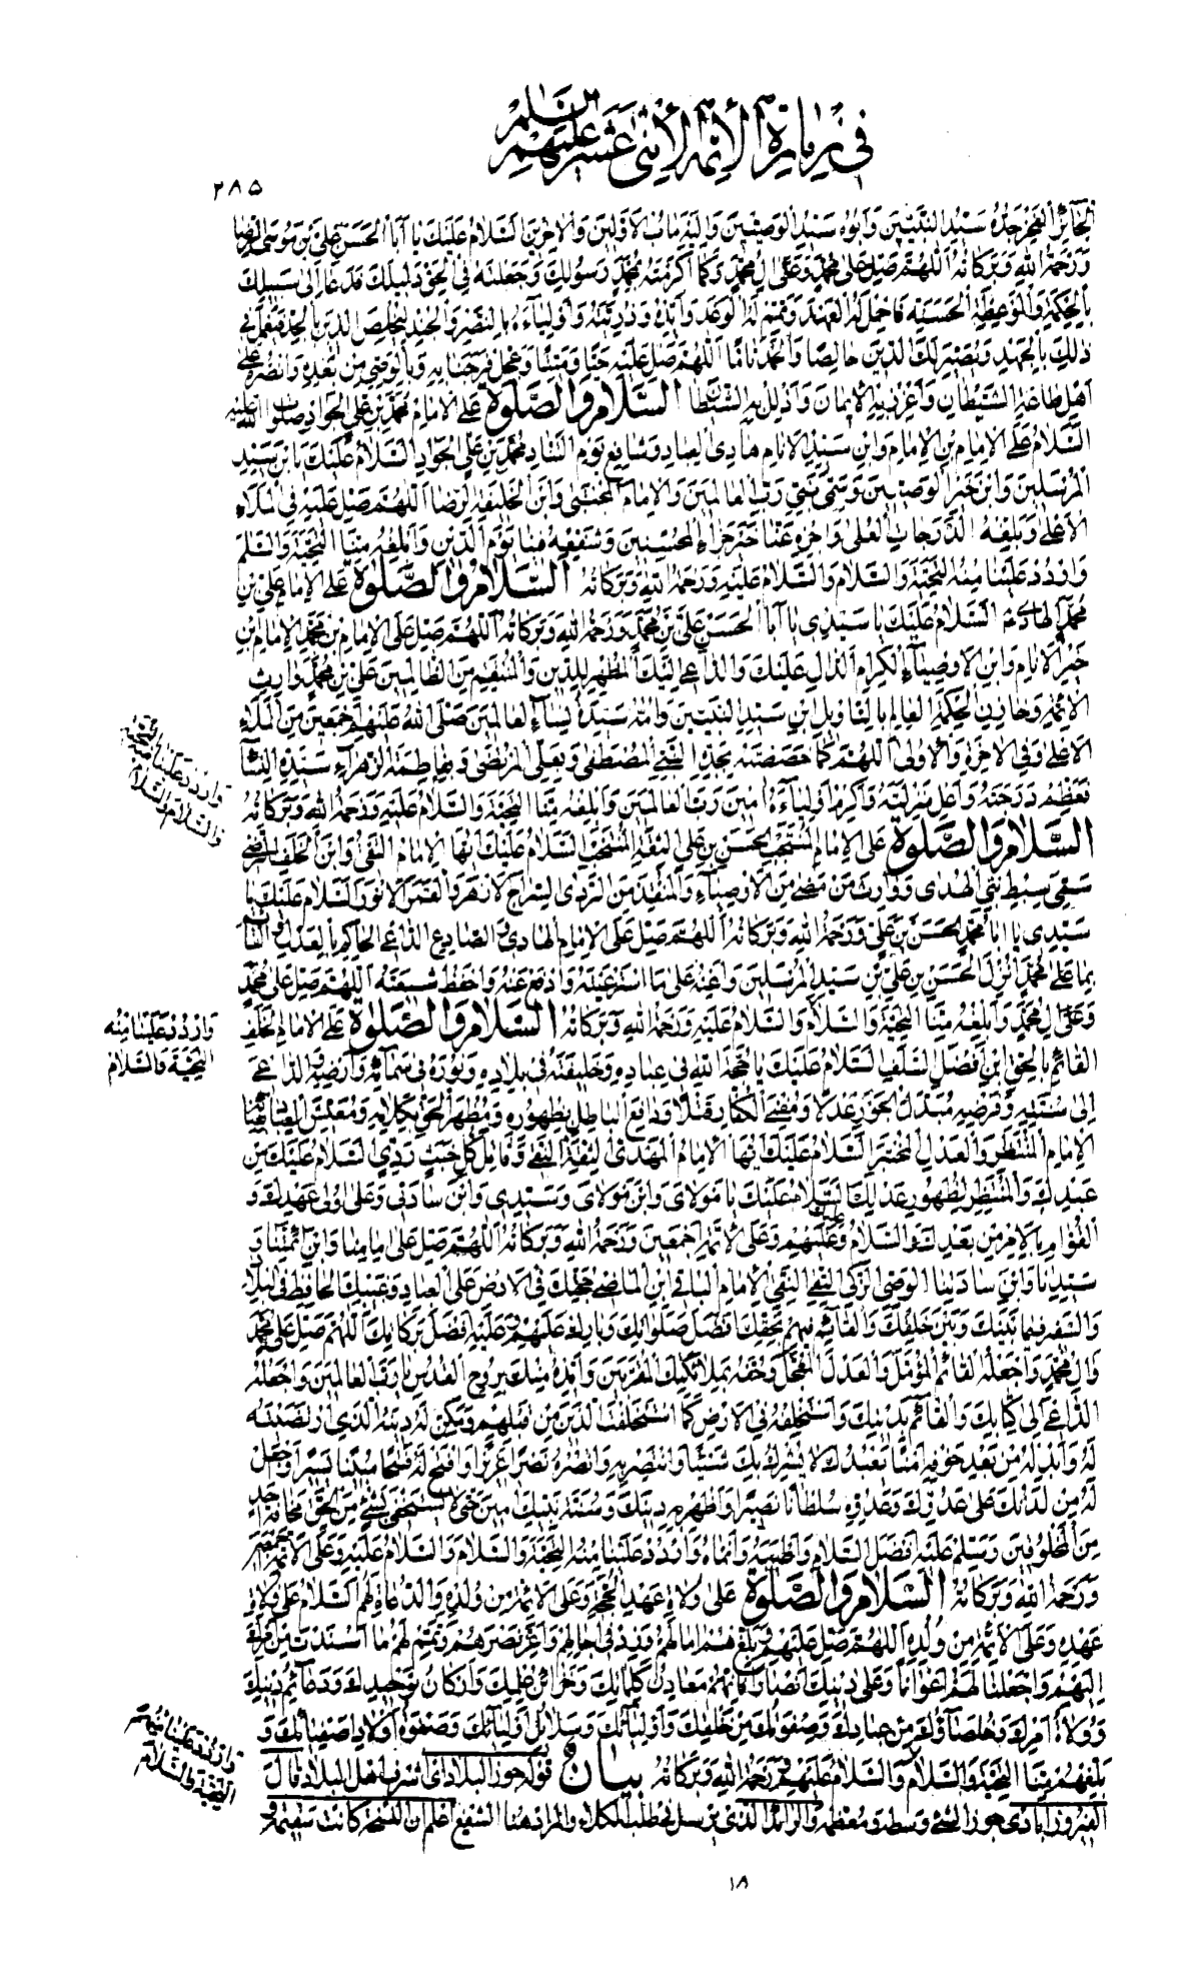 في زيارة الأئمة الأثنى عشر عليهم السلم
٢٨٥
الجائز الفخر جده سيد النبيين وأبوه سيد الوصيين واليه مآب الاولين والاخرين السلام عليك يا أبا الحسن علي بن موسى الرضا
ورحمة الله وبركاته اللهم صل على محمد وعلى ال محمد وكما اكرمته بمحمد رسولك وجعلته في الحق دليلك قد دعا الى سبيلك
بالحكمة والموعظة الحسنة فاجمل له العهد وتمم له الوعد وأيده وذريته وأولياءه بالنصر والجند
ذلك بالجهد ويصير لك الدين خالصا والحمد تاما اللهم صل عليه حيا وميتا وعجل فرجنا به وبالوصي من بعده وانصره على
اهل طاعة الشيطان وأعزز به الإيمان وأذلل به الشيطان السلام والصلوة على الامام محمد بن علي الجواد صلوات الله عليه
السلام على الامام بن الإمام وابن سيد الانام هادي العباد وشافع يوم التناد محمد بن علي الجواد السلام عليك يا ابن سيد
المرسلين وابن خير الوصيين وسمي نبي رب العالمين والإمام المجتبى وابن الخليفة الرضا اللهم صل عليه في الملاء
الأعلى وبلغه الدرجات العلى واجزه عنا خير جزاء المحسنين وشفعه فينا يوم الدين وأبلغه منا التحية والسلم
واردد علينا منه التحية والسلام والسلام عليه ورحمة الله وبركاته السلام والصلوة على الإمام علي بن
محمد الهادي السلام عليك يا سيدي يا أبا الحسن علي بن محمد ورحمة الله وبركاته اللهم صل على الإمام بن محمد الإمام بن
خير الانام وابن الاوصياء الكرام الدال عليك والداعي اليك المطهر للدين والمنتقم من الظالمين علي بن محمد وارث
الائمة وخازن الحكمة العالم بالتأويل ابن سيد النبيين وأمه سيدة نساء العالمين صلى الله عليهم أجمعين من الملاء
الاعلى وفي الاخرة والاولى اللهم كما خصصته بجده النبي المصطفى وبعلي المرتضى وبفاطمة الزهراء سيدة النسآء
فعظم درجته وأعل منزلته وأكرم أولياءه امين رب العالمين وأبلغه منا التحية والسلام عليه ورحمة الله وبركاته
السلام والصلوة على الإمام المنتجب الحسن بن علي السلام عليك أيها الإمام التقي وابن الخلف المرضي
سمي سبط نبي الهدى ووارث من مضى من الاوصياء والمنقذ من الردى السراج الازهر والقمر الانور السلام عليك يا
سيدي يا أبا محمد الحسن بن علي ورحمة الله وبركاته اللهم صل على الإمام الهادي الصادع الداعي الحاكم بالعدل في الناس
بما على محمد أنزل الحسن بن علي بن سيد المرسلين وأعنه على ما استرعيته وادفع عنه واحفظ شيعته اللهم صل على محمد
وعلى ال محمد وأبلغه منا التحية والسلام والسلام عليه ورحمة الله وبركاته السلام والصلوة على الامام الخلف
القائم بالحق ابن أفضل السلف السلام عليك يا حجة الله في عباده وخليفته في بلاده ونوره في سمائه وأرضه الداعي
إلى سنته وفرضه مبدل الجور عدلا ومفني الكفار قتلا ودافع الباطل بظهوره ومظهر الحق بكلامه
الإمام المنتظر والعدل المختبر السلام عليك أيها الإمام المهدى السلام عليك من
عبدك والمنتظر لظهور عدلك السلام عليك يا مولاى وابن مولاى وسيدى وابن سادتى وعلى أولى عهدك و
القوام بالامر من بعدك والسلام وعليهم وعلى الأئمة اجمعين ورحمة الله وبركاته اللهم صل على إمامنا وابن أئمتنا و
سيدنا وابن سادتنا الوصي الزكي التقي النقي الإمام الباقي ابن الماضي حجتك في الارض على العباد وعينك الحافظ في البلاد
والسفير فيما بينك وبين خلقك والقائم فيهم بحقك أفضل صلواتك وبارك عليهم وعليه أفضل بركاتك اللهم صل على محمد
وال محمد واجعله القائم المؤمل والعدل المعجل وحفه بملائكتك المقربين وأيده منك بروح القدس يا رب العالمين واجعله
الداعي إلى كتابك والقائم بدينك واستخلفه في الارض كما استخلفت الذين من قبلهم ومكن له دينه الذي ارتضيته
له وأبدله من بعد خوفه امنا يعبدك لا يشرك بك شيئا وانتصر به وانصره نصرا عزيزا وافتح له فتحا مبينا يسيرا واجعل
له من لدنك على عدوك وعدوه سلطانا نصيرا وأظهر به دينك وسنة نبيك حتى لا يستخفي بشئ من الحق مخافة احد
من المخلوقين وسلم عليه أفضل السلام وأطيبه وأنماه واردد علينا منه التحية والسلام والسلام عليه وعلى الائمة اجمعين
ورحمة الله وبركاته السلام والصلوة على ولاة عهد الحجة وعلى الائمة من ولده والدعاء لهم السلام على ولاة
عهده وعلى الأئمة من ولده اللهم صل عليهم وبلغهم امالهم وزد في آجالهم وأعز نصرهم وتمم لهم ما أسندت من أمرك
إليهم واجعلنا لهم أعوانا وعلى دينك أنصارا فانهم معادن كلماتك وخزائن علمك وأركان توحيدك ودعائم دينك
وولاة أمرك وخلصاؤك من عبادك وصفوتك من خلقك وأوليائك وسلائل أوليائك وصفوة أولاد اصفيائك و
بلغهم منا التحية والسلام والسلام عليهم ورحمة الله وبركاته بيان قوله حوز البلاد اى اشرف اهل البلاد قال
الفيروزابادى جوز الشئ وسطه ومعظمه والرائد الذى يرسل لطلب الكلاء والمراد هنا الشفيع اعلم ان النسخة كانت سقيمة
واردد علينا منه التحية
والسلام والسلام
واردد علينا منه
التحية والسلام
واردد علينا منهم
التحية والسلام
١٨